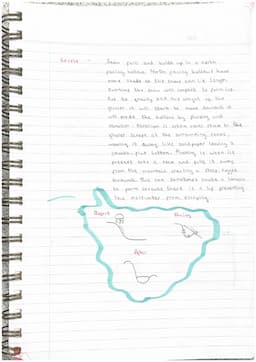 Corrie - Snow falls and builds up in a north
facing hollow. North facing hollows have
more shade so the snow can lie longer.
Overtime the snow will compact to form ice.
Due to gravity and the weight of the
glacier it will start to move downhill. It
will erode the hollow by plucking and
abrasion. Abrasion is when rocks stuck to the
glacier scrape at the surrounding rocks,
wearing it away like sandpaper leaving a
smooth, flat bottom. Plucking is when ice
freezes onto a rock and pulls it away
from the mountain creating a steep, rugged
backwall. This can sometimes create a lochan
to form because there is a lip preventing
the meltwater from escaping.
Before
During
After